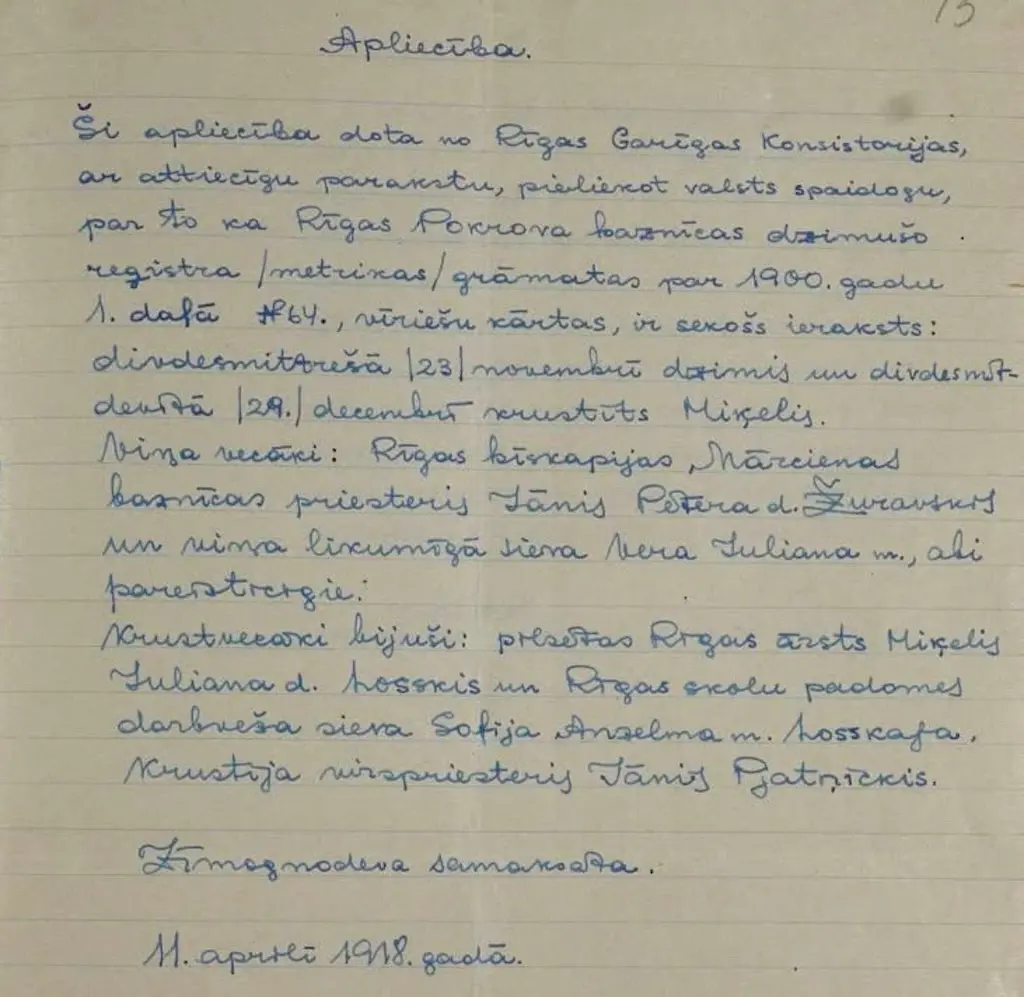 13
Apliecība.
Ši apliecība dota no Rīgas Garīgas Konsistorijas,
ar attiecīgu parakstu, pieliekot valsts spaidogu,
par to ka Rīgas Pokrova baznīcas dzimušo
registra /metrikas/ grāmatas par 1900. gadu
1. daļā №64., vīriešu kārtas, ir sekošs ieraksts:
divdesmittrešā /23/ novembrī dzimis un divdesmit-
devītā /29./ decembrī krustīts Miķelis.
Viņa vecāki: Rīgas bīskapijas, Mārcienas
baznīcas priesteris Jānis Pētera d. Žuravskis
un viņa likumīgā sieva Vera Juliana m., abi
pareizticīgie.
Krustvecāki bijuši: pilsētas Rīgas ārsts Miķelis
Juliana d. Losskis un Rīgas skolu padomes
darbveža sieva Sofija Anzelma m. Losskaja.
Krustīja virspriesteris Jānis Pjatņickis.
Zīmognodeva samaksāta.
11. aprilī 1918. gadā.